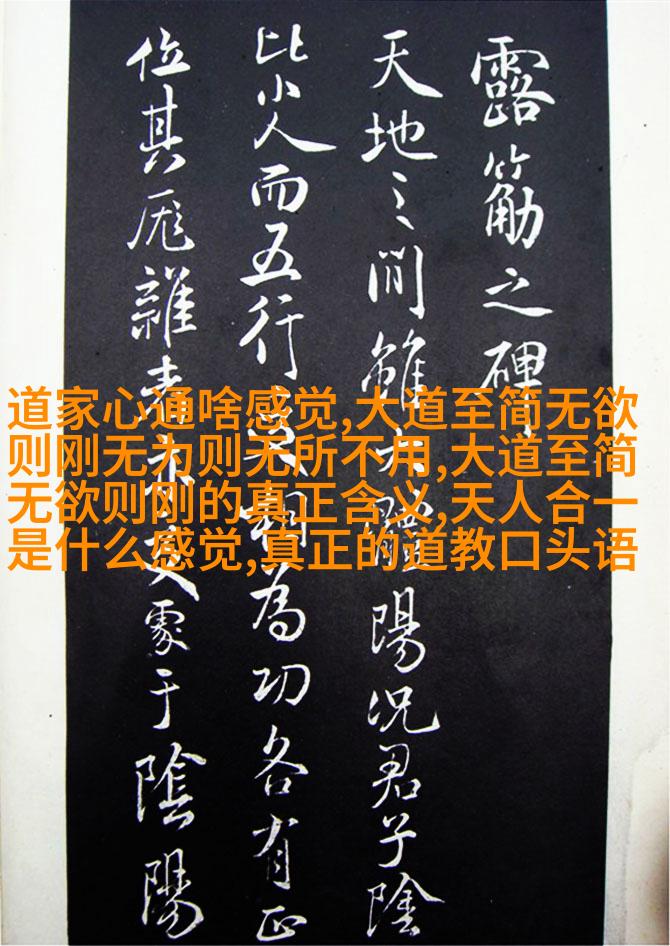 露筋之碑
天地之間雖大體陽況君子陰
比小人而五行為功各有正
位其厖雜亦處于陰陽
道家心通啥感觉,大道至简无欲
则刚无为则无所不用,大道至简
无欲则刚的真正含义,天人合一
是什么感觉,真正的道教口头语